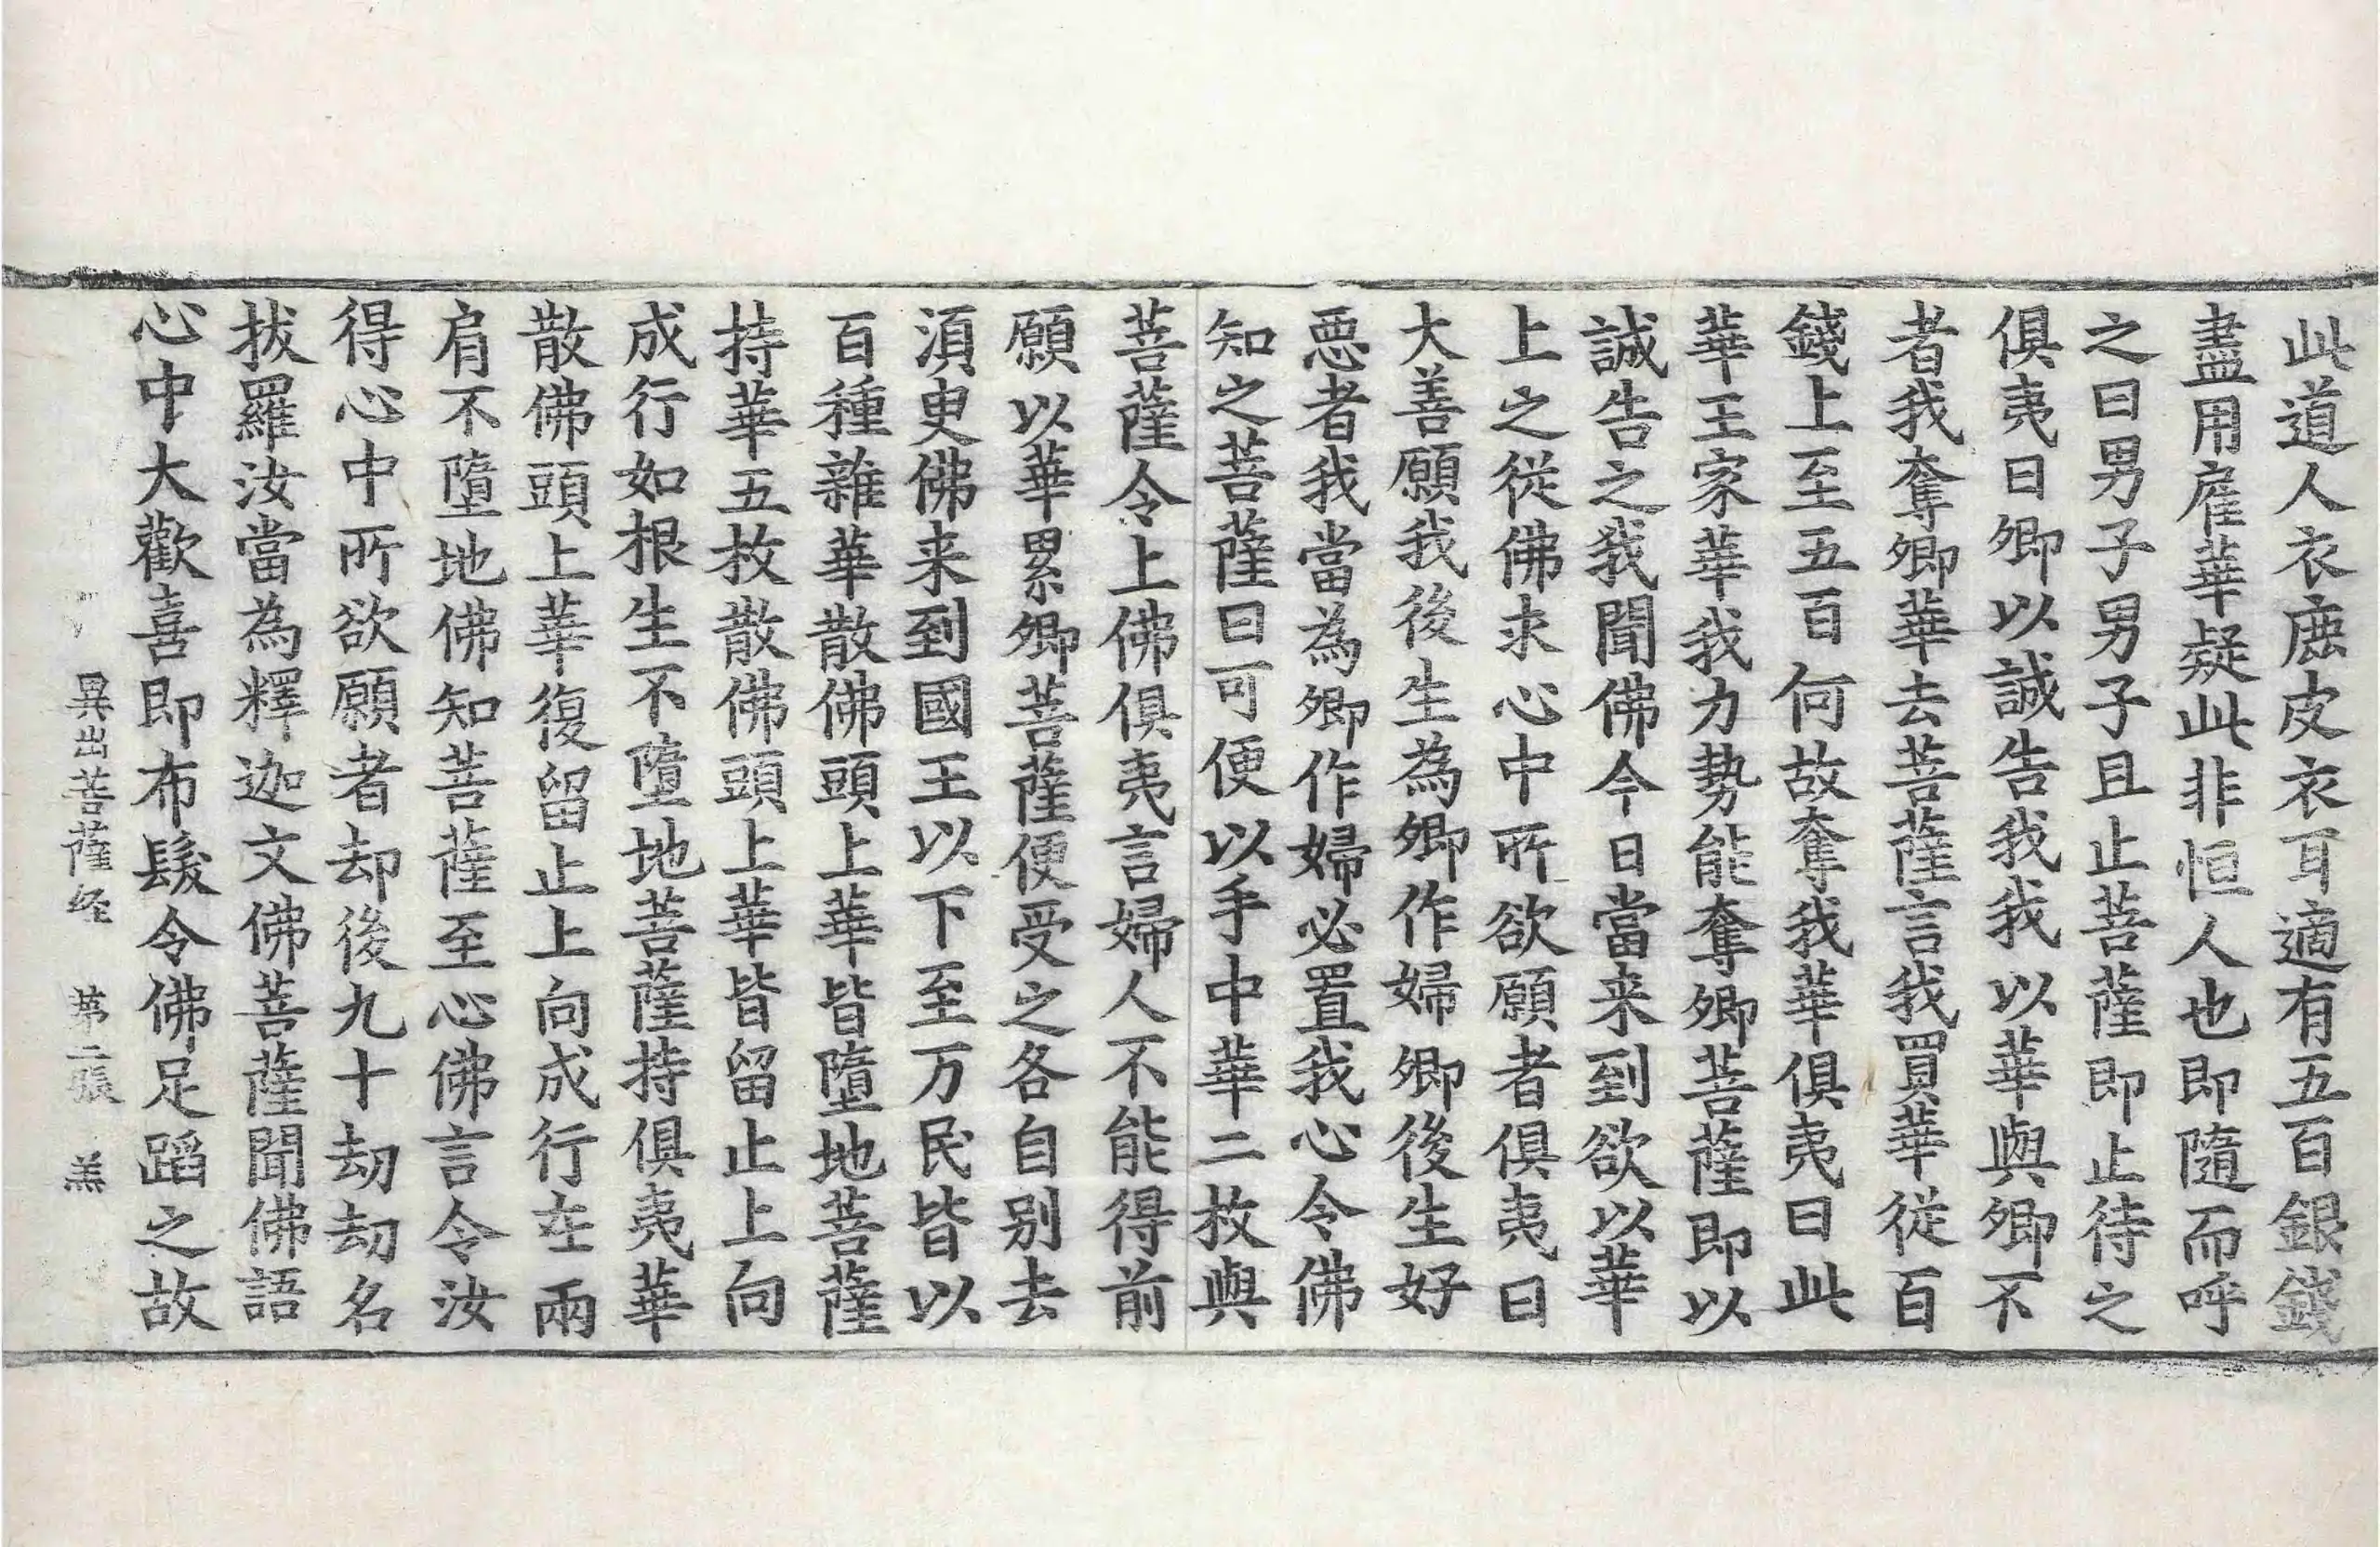 此道人衣鹿皮衣耳適有五百銀錢
盡用雇華疑此非恒人也即隨而呼
之曰男子男子且止菩薩即止待之
俱夷曰卿以誠告我我以華與卿不
者我奪卿華去菩薩言我買華從百
錢上至五百何故奪我華俱夷曰此
華王家華我力勢能奪卿菩薩即以
誠告之我聞佛今日當来到欲以華
上之從佛求心中所欲願者俱夷曰
大善願我後生為卿作婦卿後生好
惡者我當為卿作婦必置我心令佛
知之菩薩曰可便以手中華二枚與
菩薩令上佛俱夷言婦人不能得前
願以華累卿菩薩便受之各自別去
湏臾佛来到國王以下至万民皆以
百種雜華散佛頭上華皆墮地菩薩
持華五枚散佛頭上華皆留止上向
成行如根生不墮地菩薩持俱夷華
散佛頭上華復留止上向成行在兩
肩不墮地佛知菩薩至心佛言令汝
得心中所欲願者却後九十劫劫名
拔羅汝當為釋迦文佛菩薩聞佛語
心中大歡喜即布髮令佛足蹈之故
異出菩薩経 第二張 羔